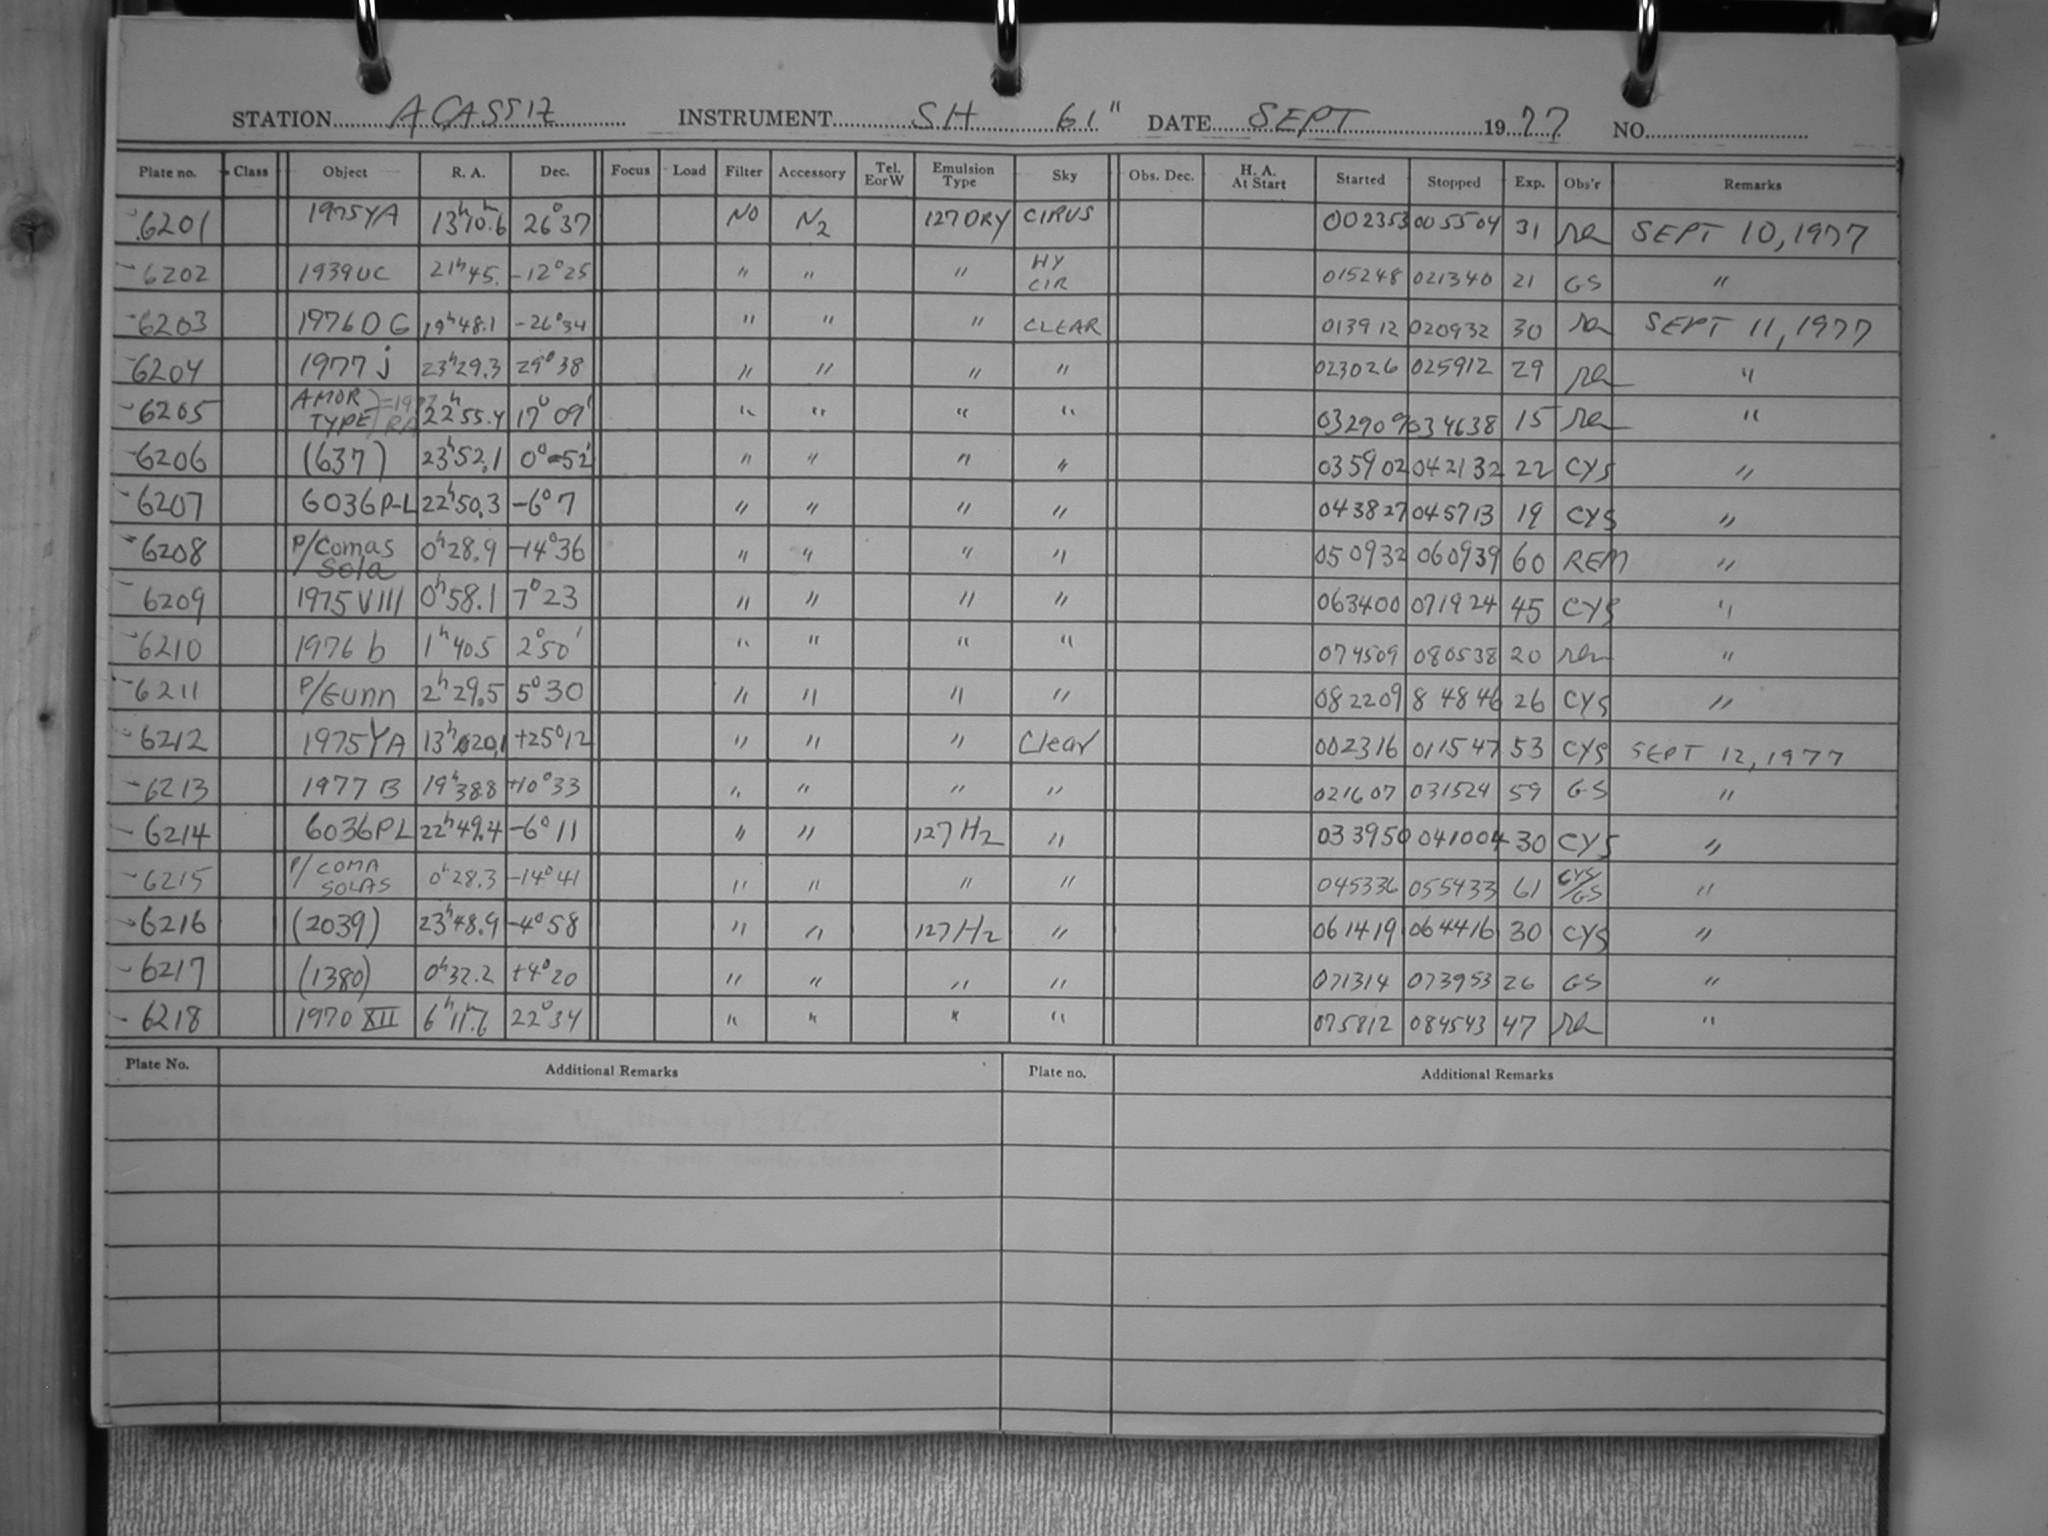 STATION ACASSIZ INSTRUMENT SH 61" DATE SEPT 1977 NO.
Plate no. Class Object R. A. Dec. Focus Load Filter Accessory Tel. EorW Emulsion Type Sky Obs. Dec. H. A. At Start Started Stopped Exp. Obs'r Remarks
6201 1975YA 13h10.6 26°37 NO N2 127DRY CIRUS 002353 005504 31 SEPT 10, 1977
6202 1939UC 21h45. -12°25 " " " HY CIR 015248 021340 21 GS "
6203 1976DG 19h48.1 -26°34 " " " CLEAR 013912 020932 30 SEPT 11, 1977
6204 1977j 23h29.3 29°38 " " " " 023026 025912 29 "
6205 AMOR TYPE 22h55.4 17°09' " " " " 032909 034638 15 "
6206 (637) 23h52.1 0°-52' " " " " 035902 042132 22 CYS "
6207 6036P-L 22h50.3 -6°7 " " " " 043827 045713 19 CYS "
6208 P/Comas Sola 0h28.9 -14°36 " " " " 050932 060939 60 REM "
6209 1975VIII 0h58.1 7°23 " " " " 063400 071924 45 CYS "
6210 1976b 1h40.5 2°50' " " " " 074509 080538 20 rem "
6211 P/Gunn 2h29.5 5°30 " " " " 082209 84846 26 CYS "
6212 1975YA 13h20.1 +25°12 " " " Clear 002316 011547 53 CYS SEPT 12, 1977
6213 1977B 19h38.8 +10°33 " " " " 021607 031524 59 GS "
6214 6036PL 22h49.4 -6°11 " " 127H2 " 033950 041004 30 CYS "
6215 P/COMA SOLAS 0h28.3 -14°41 " " " " 045336 055433 61 CYS/GS "
6216 (2039) 23h48.9 -4°58 " " 127H2 " 061419 064416 30 CYS "
6217 (1380) 0h32.2 +4°20 " " " " 071314 073953 26 GS "
6218 1970XII 6h11.6 22°34 " " " " 075812 084543 47 "
Plate No. Additional Remarks Plate no. Additional Remarks